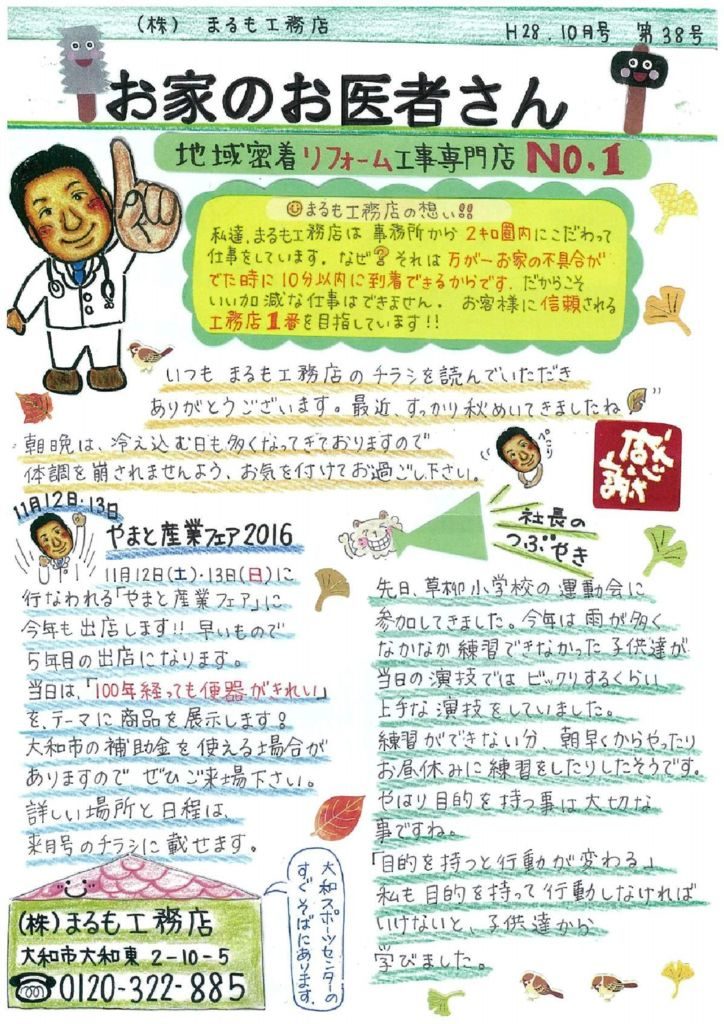 (株) まるも工務店
H28.10月号 第38号
お家のお医者さん
地域密着リフォーム工事専門店 NO.1
まるも工務店の想い!!
私達、まるも工務店は 事務所から 2キロ圏内にこだわって
仕事をしています。なぜ? それは 万が一お家の不具合が
でた時に 10分以内に到着できるからです。だからこそ
いい加減な仕事はできません。 お客様に信頼される
工務店1番を目指しています!!
いつも まるも工務店の チラシを読んでいただき
ありがとうございます。最近、すっかり秋めいてきましたね
朝晩は、冷え込む日も多くなってきておりますので
体調を崩されませんよう、お気を付けてお過ごし下さい。
ぺこり
11月12日・13日
やまと産業フェア2016
11月12日(土)・13日(日)に
行なわれる「やまと産業フェア」に
今年も出店します!! 早いもので
5年目の出店になります。
当日は、「100年経っても便器がきれい」
を、テーマに商品を展示します!
大和市の補助金を使える場合が
ありますので ぜひご来場下さい。
詳しい場所と日程は、
来月号のチラシに載せます。
社長の
つぶやき
先日、草柳小学校の運動会に
参加してきました。今年は雨が多く
なかなか練習できなかった子供達が
当日の演技ではビックリするくらい
上手な演技をしていました。
練習ができない分 朝早くからやったり
お昼休みに練習をしたりしたそうです。
やはり目的を持つ事は大切な
事ですね。
「目的を持つと行動が変わる」
私も目的を持って行動しなければ
いけないと、子供達から
学びました。
(株)まるも工務店
大和市大和東 2-10-5
0120-322-885
大和スポーツセンターの
すぐそばにあります。